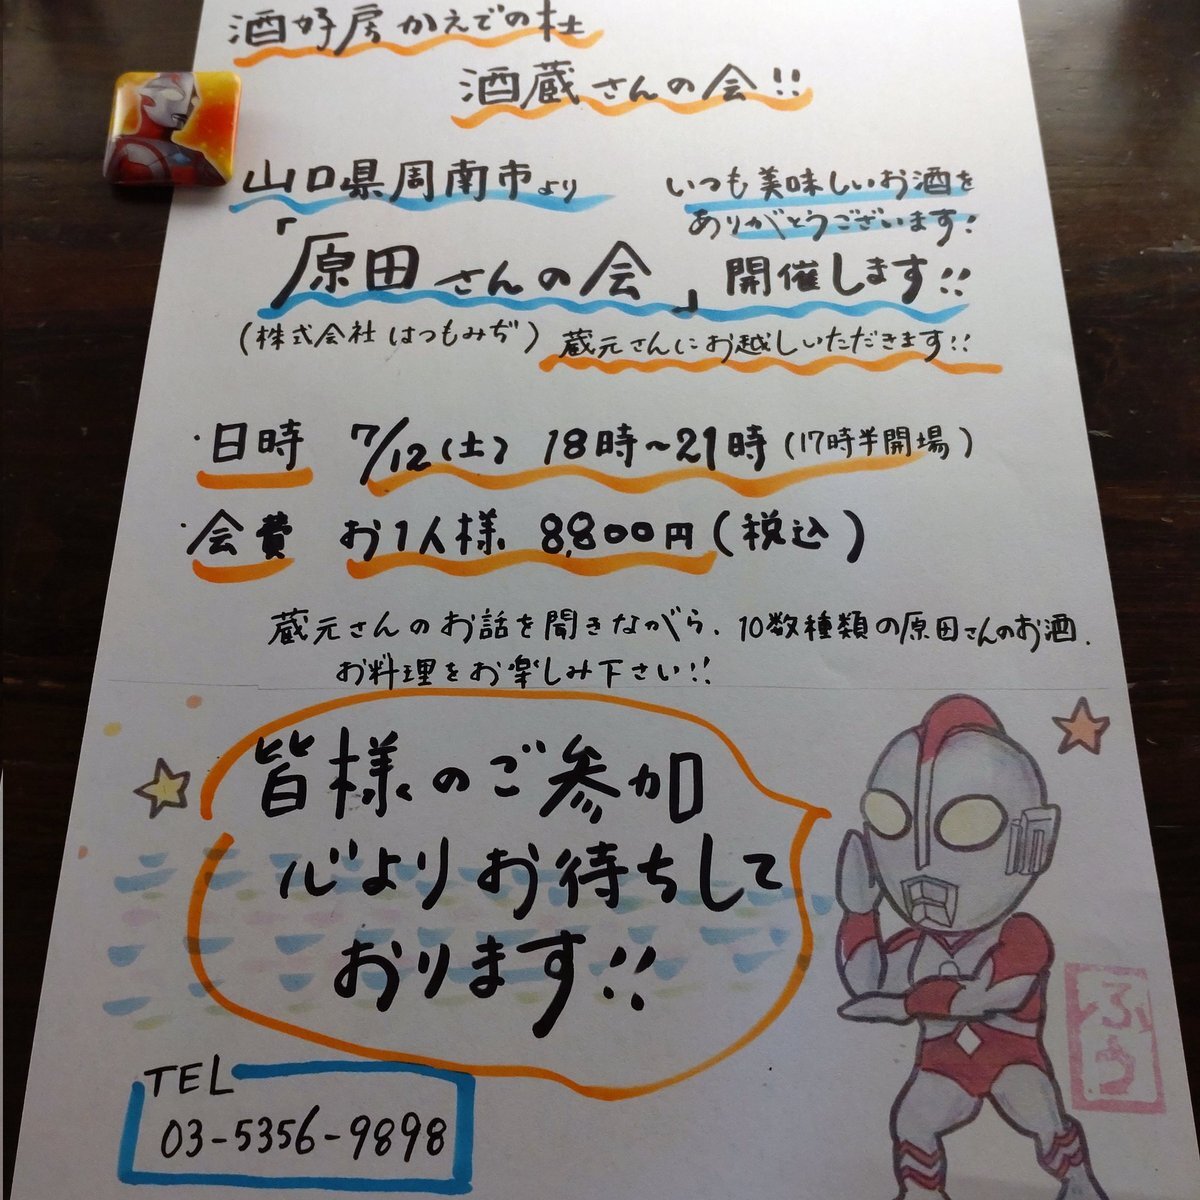 酒好房かえでの杜
酒蔵さんの会!!
山口県周南市より
いつも美味しいお酒を
ありがとうございます!
「原田さんの会」開催します!!
(株式会社はつもみぢ)蔵元さんにお越しいただきます!!
・日時 7/12(土) 18時~21時(17時半開場)
・会費 お1人様 8,800円(税込)
蔵元さんのお話を聞きながら、10数種類の原田さんのお酒、
お料理をお楽しみ下さい!!
皆様のご参加
心よりお待ちして
おります!!
TEL
03-5356-9898
ふう